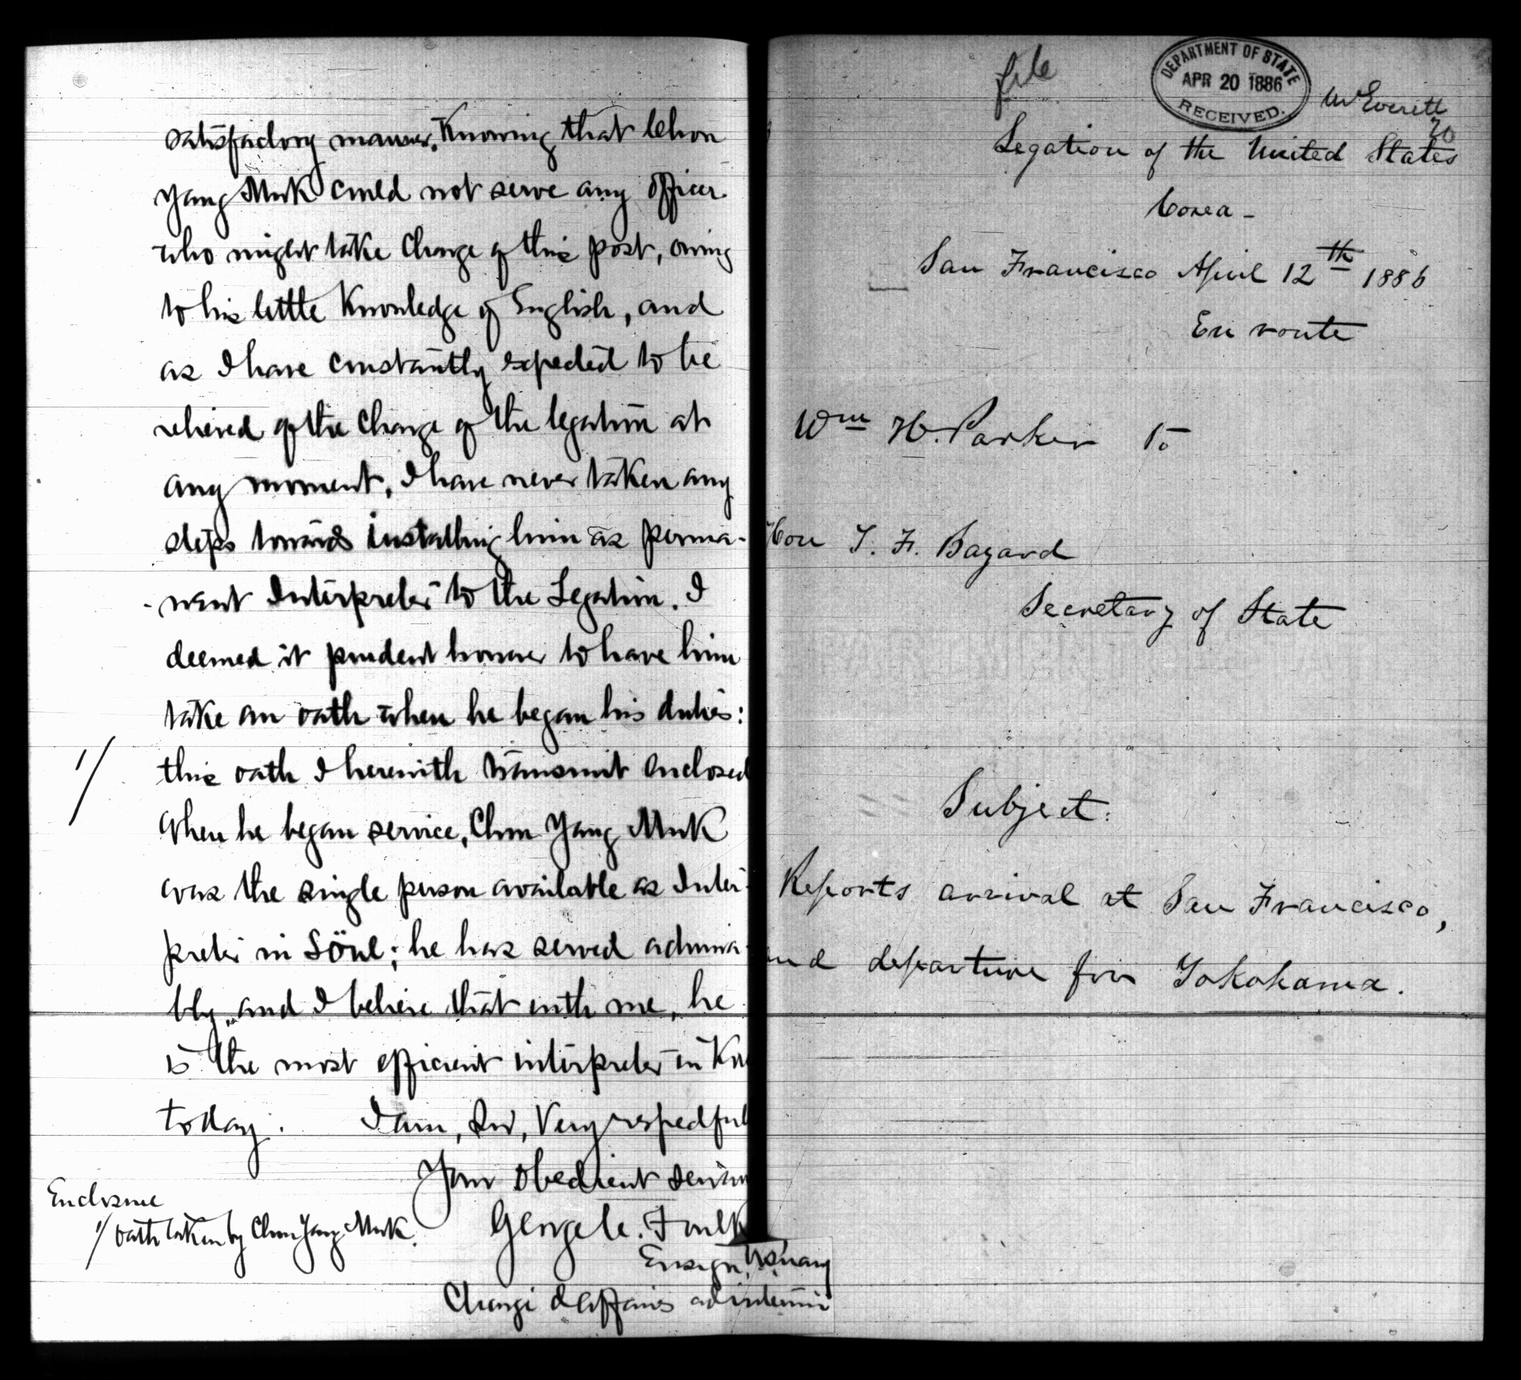 satisfactory manner. Knowing that Chon
Yang Muk could not serve any officer
who might take charge of this post, owing
to his little knowledge of English, and
as I have constantly expected to be
relieved of the charge of the legation at
any moment, I have never taken any
steps towards installing him as perma-
-nent Interpreter to the Legation. I
deemed it prudent however to have him
take an oath when he began his duties:
1/ this oath I herewith transmit enclosed
When he began service, Chon Yang Muk
was the single person available as Inter-
preter in Söul; he has served admira-
bly, and I believe that with me, he
is the most efficient interpreter in Ko
today. I am, Sir, Very respectful
Your obedient servan
Enclosure
1/ Oath taken by Chon Yang Muk.
George C. Foulk
Ensign, U.S. Navy
Chargé d'affaires ad interim
file
DEPARTMENT OF STATE
APR 20 1886
RECEIVED.
Mr Everett
20
Legation of the United States
Corea -
San Francisco April 12th 1886
En route
Wm H. Parker to
Hon T. F. Bayard
Secretary of State
Subject:
Reports arrival at San Francisco,
and departure for Yokohama.